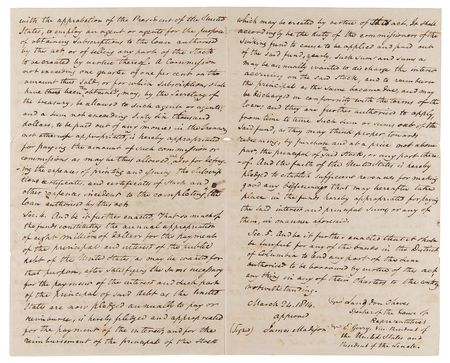 with the approbation of the President of the United
States, to employ an agent or agents for the purpose
of obtaining Subscriptions to the loan authorised
by this act or of selling any part of the Stock
to be created by virtue thereof. A Commission
not exceeding one quarter of one per cent on the
amount thus sold, or for which Subscriptions shall
have thus been obtained, may, by the Secretary of
the treasury, be allowed to such agent or agents,
and a sum not exceeding Sixty two thousand
dollars, to be paid out of any monies in the treasury
not otherwise appropriated, is hereby appropriated
for paying the amount of such commission or
commissions as may be thus allowed, and also for defray-
ing the expenses of printing and issuing the Subscrip-
tion certificates, and certificates of Stock and
other expenses incident to the completing the
loan authorised by this act
Sec. 4. And be it further enacted, That so much of
the funds constituting the annual appropriation
of eight millions of dollars for the payment
of the principal and interest of the public
debt of the United States as may be wanted for
that purpose, after satisfying the sums necessary
for the payment of the interest and such part
of the principal of said debt as the United
States are now pledged annually to pay or
reimburse, is hereby pledged and appropriated
for the payment of the interest, and for the
reimbursement of the principal of the Stock
which may be created by virtue of this act. It shall
accordingly be the duty of the commissioners of the
sinking fund to cause to be applied and paid out
of the said fund, yearly, such sum and sums as
may be annually wanted to discharge the interest
accruing on the said Stock, and to reimburse
the principal as the same becomes due, and may
be discharged in conformity with the terms of the
loan; and they are further authorised to apply,
from time to time such sum or sums out of the
said fund, as they may think proper, towards
redeeming, by purchase and at a price not above
par, the principal of said Stock, or any part there-
of. And the faith of the United States, is hereby
pledged to establish sufficient revenues for making
good any deficiency that may hereafter take
place in the funds hereby appropriated for paying
the said interest and principal Sums, or any of
them, in manner aforesaid
Sec. 5. And be it further enacted that it shall
be lawful for any of the banks in the district
of Columbia to lend any part of the sum
authorised to be borrowed by virtue of this act
any thing in any of their Charters to the contrary
notwithstanding.
Langdon Cheves
March 24. 1814. Speaker of the House of
approved Representatives
(Signed) James Madison E. Gerry, Vice President of
the United States and
President of the Senate.